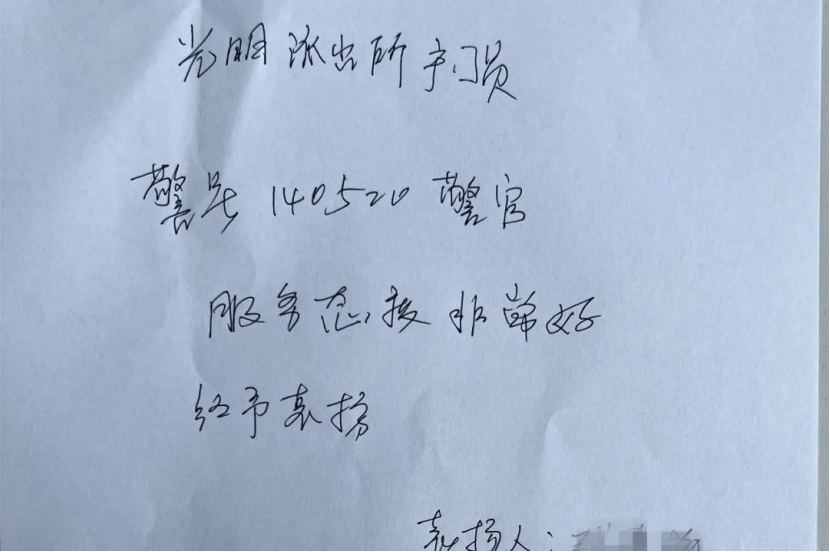 光明派出所户员
警号140520警官
服务态度非常好
给予表扬
表扬人: